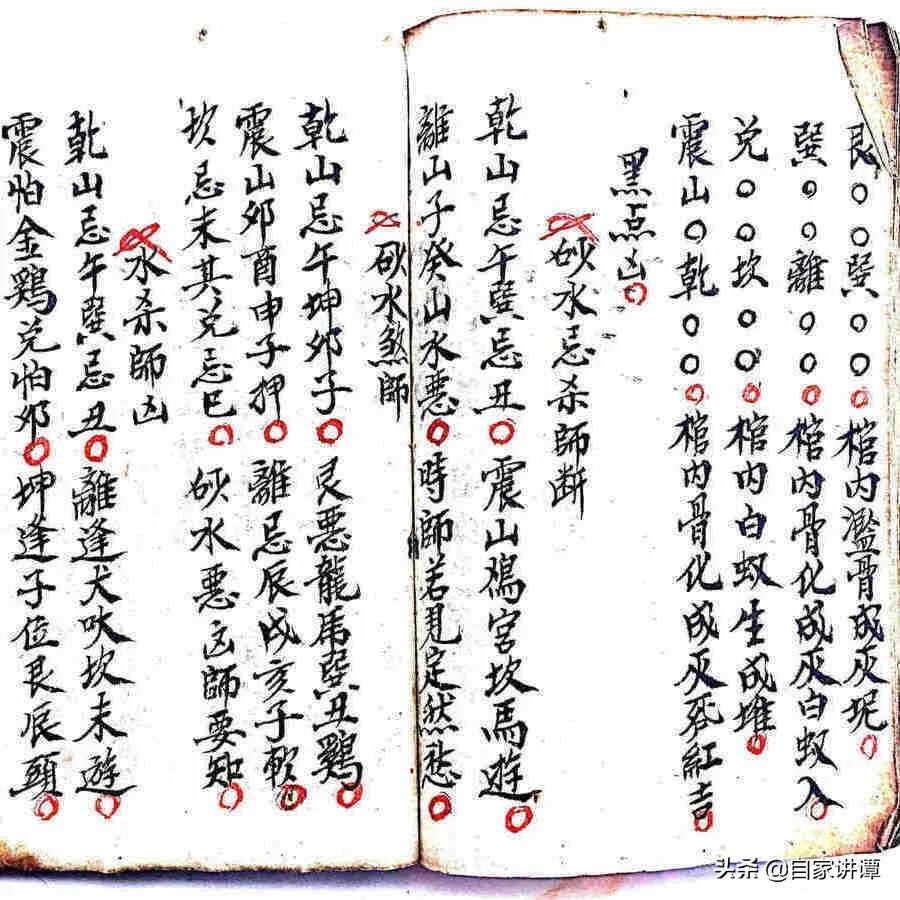 艮○○巽○○○棺内濫骨成灰坭○
巽○○離○○○棺内骨化成灰白蚁入○
兑○○坎○○○棺内白蚁生成堆○
震山○乾○○○棺内骨化成灰死紅吉○
黑点凶○
砍水忌杀師断
乾山忌午巽忌丑○震山鳮宫坎馬遊○
離山子癸山水悪○時師若見定然愁○
砍水煞師
乾山忌午坤卯子○艮悪龍虎巽丑鷄○
震山卯酉申子押○離忌辰戌亥子軟○
坎忌未其兑忌巳○砍水悪凶師要知○
水杀師凶
乾山忌午巽忌丑○離逢犬吠坎未遊○
震怕金鷄兑怕卯○坤逢子位艮辰頭○
头条 @自家讲谭